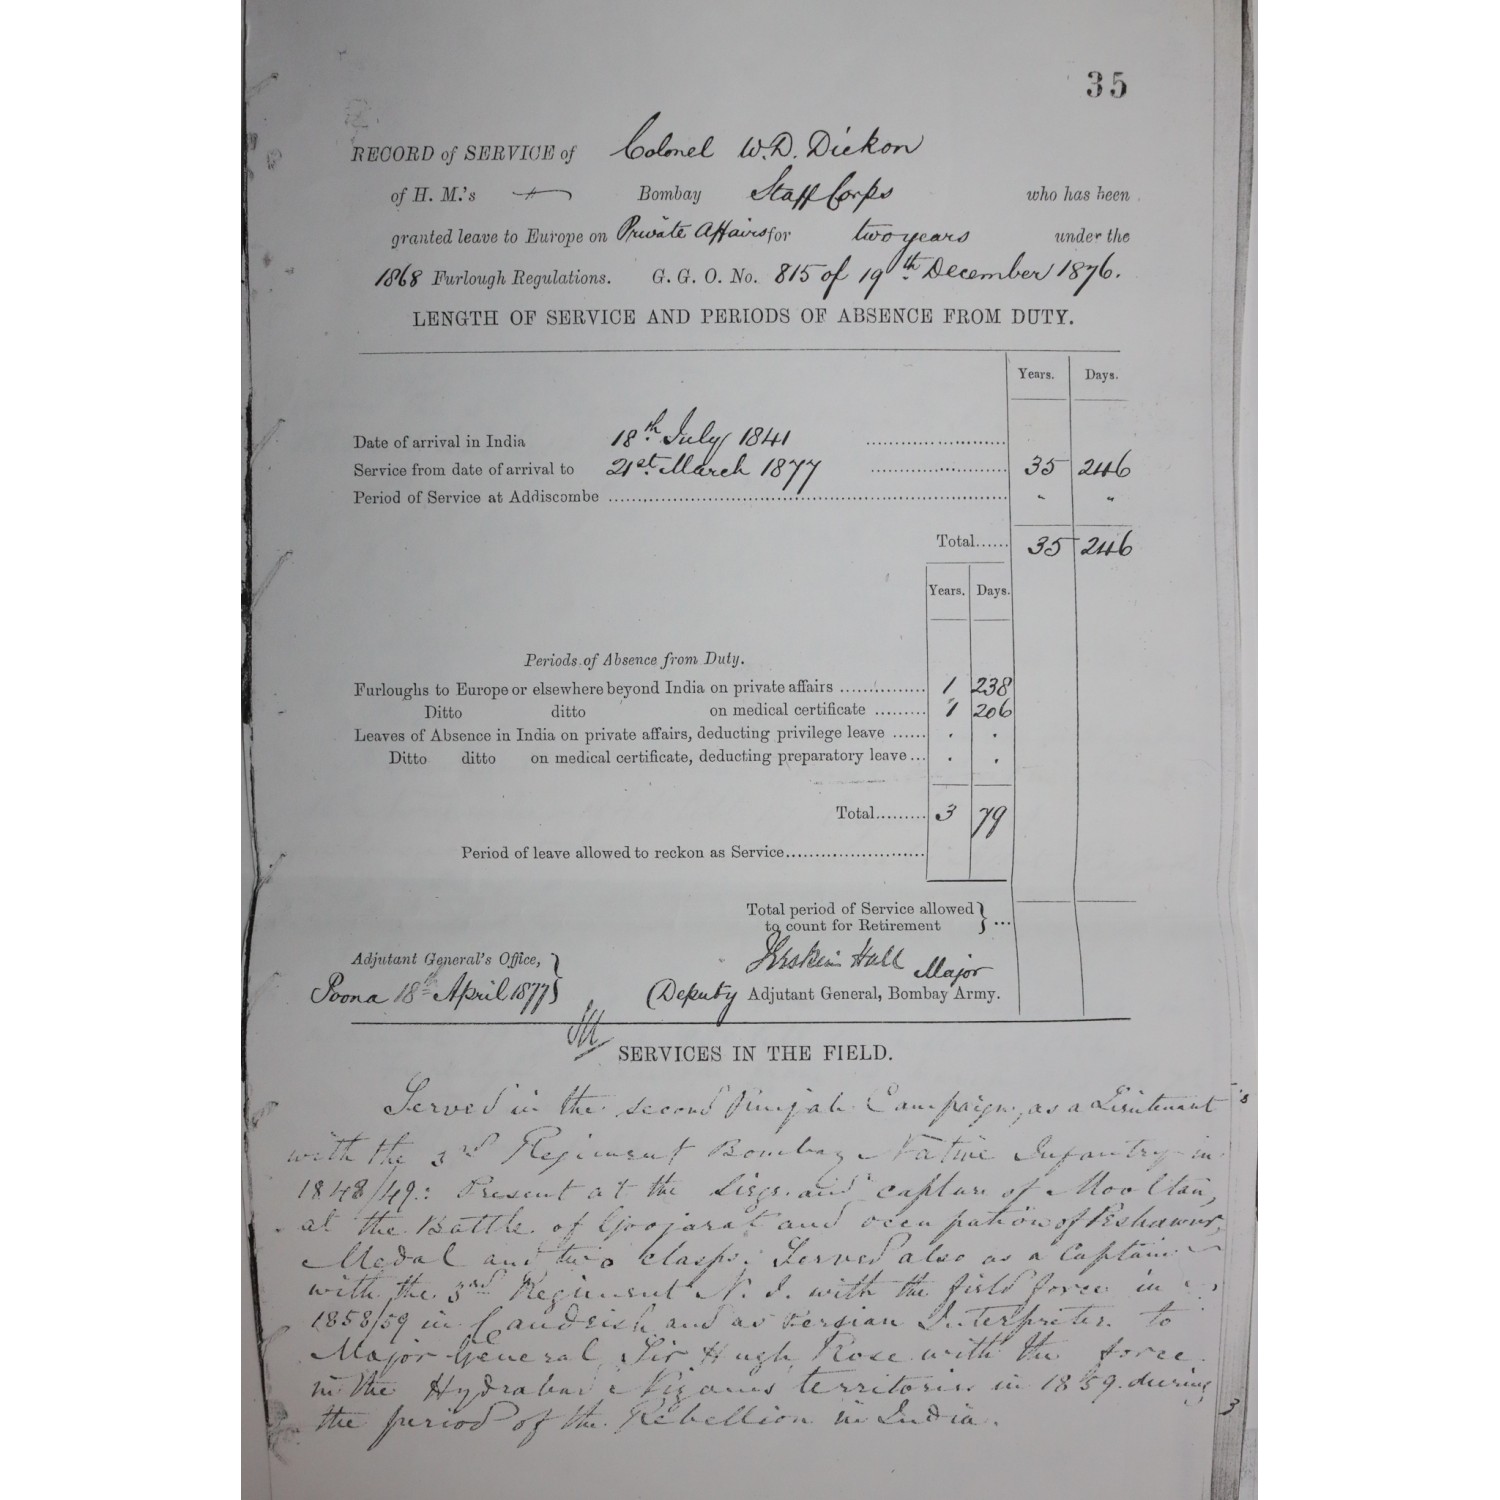 35
RECORD of SERVICE of Colonel W. D. Dickson
of H. M.'s Bombay Staff Corps who has been
granted leave to Europe on Private Affairs for two years under the
1868 Furlough Regulations. G. G. O. No. 815 of 19th December 1876.
LENGTH OF SERVICE AND PERIODS OF ABSENCE FROM DUTY.
Years. Days.
Date of arrival in India 18th July 1841
Service from date of arrival to 21st March 1877 35 246
Period of Service at Addiscombe " "
Total...... 35 246
Years. Days.
Periods of Absence from Duty.
Furloughs to Europe or elsewhere beyond India on private affairs 1 238
Ditto ditto on medical certificate 1 206
Leaves of Absence in India on private affairs, deducting privilege leave ...... . .
Ditto ditto on medical certificate, deducting preparatory leave ... . .
Total......... 3 79
Period of leave allowed to reckon as Service
Total period of Service allowed
to count for Retirement } ...
Adjutant General's Office, Erskine Hall Major
Poona 18th April 1877 (Deputy Adjutant General, Bombay Army.
SERVICES IN THE FIELD.
Served in the second Punjab Campaign, as a Lieutenant
with the 3rd Regiment Bombay Native Infantry in
1848/49: Present at the Siege and capture of Mooltan,
at the Battle of Goojarat and occupation of Peshawur,
Medal and two clasps. Served also as a Captain
with the 3rd Regiment N. I. with the field force in
1858/59 in Candeish and as Persian Interpreter to
Major General Sir Hugh Rose with the force
in the Hydrabad Nizams territories in 1859 during
the period of the Rebellion in India.